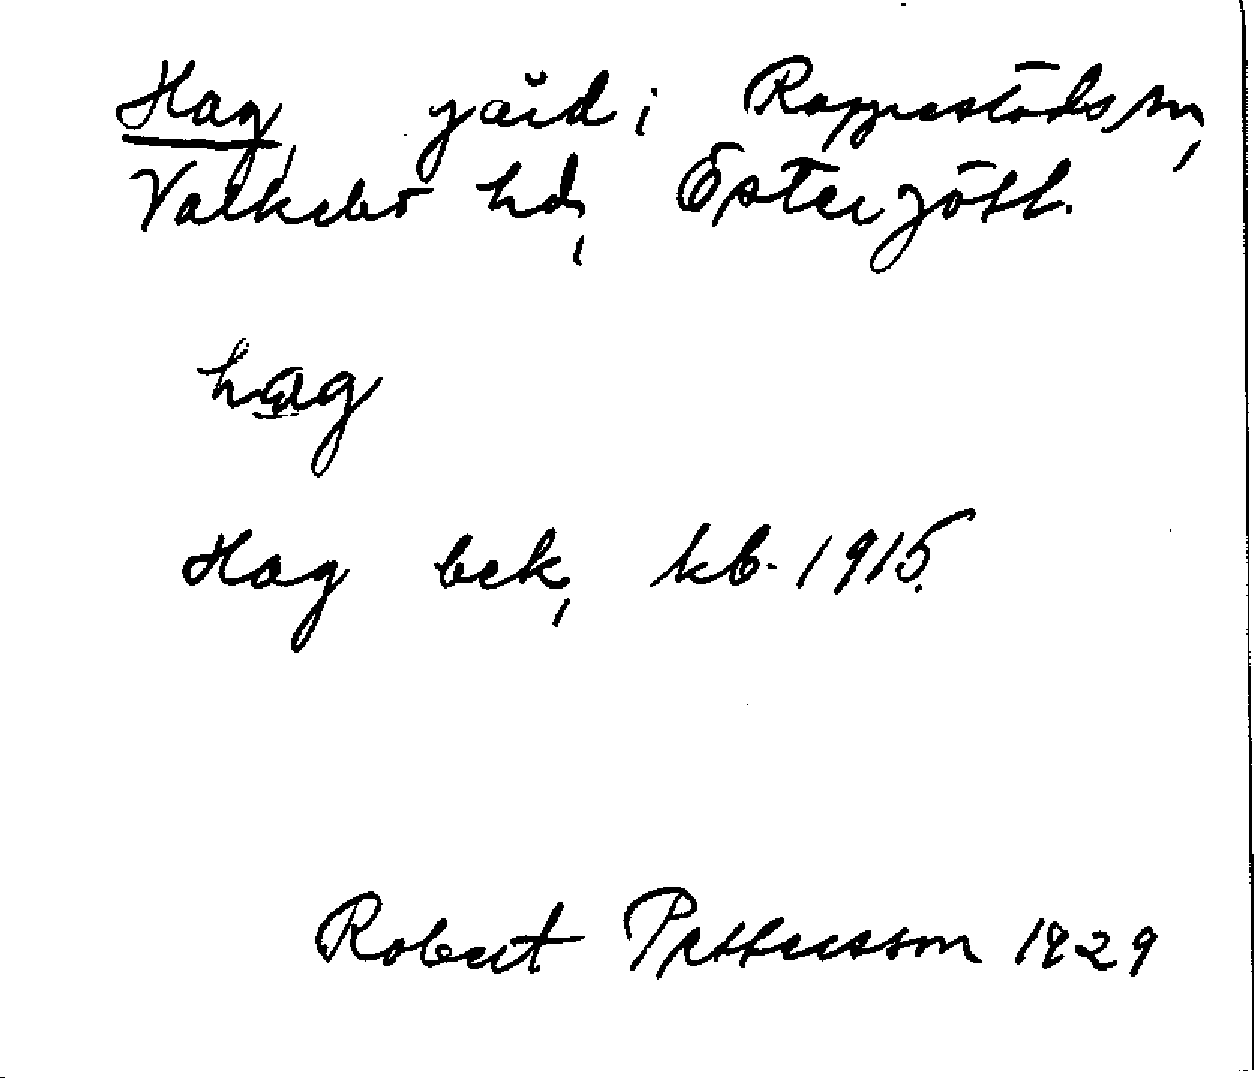 Hag, gård i Rappestads sn,
Valkebo hd, Östergötl.
hag
Hag bek, kb. 1915.
Robert Pettersson 1929